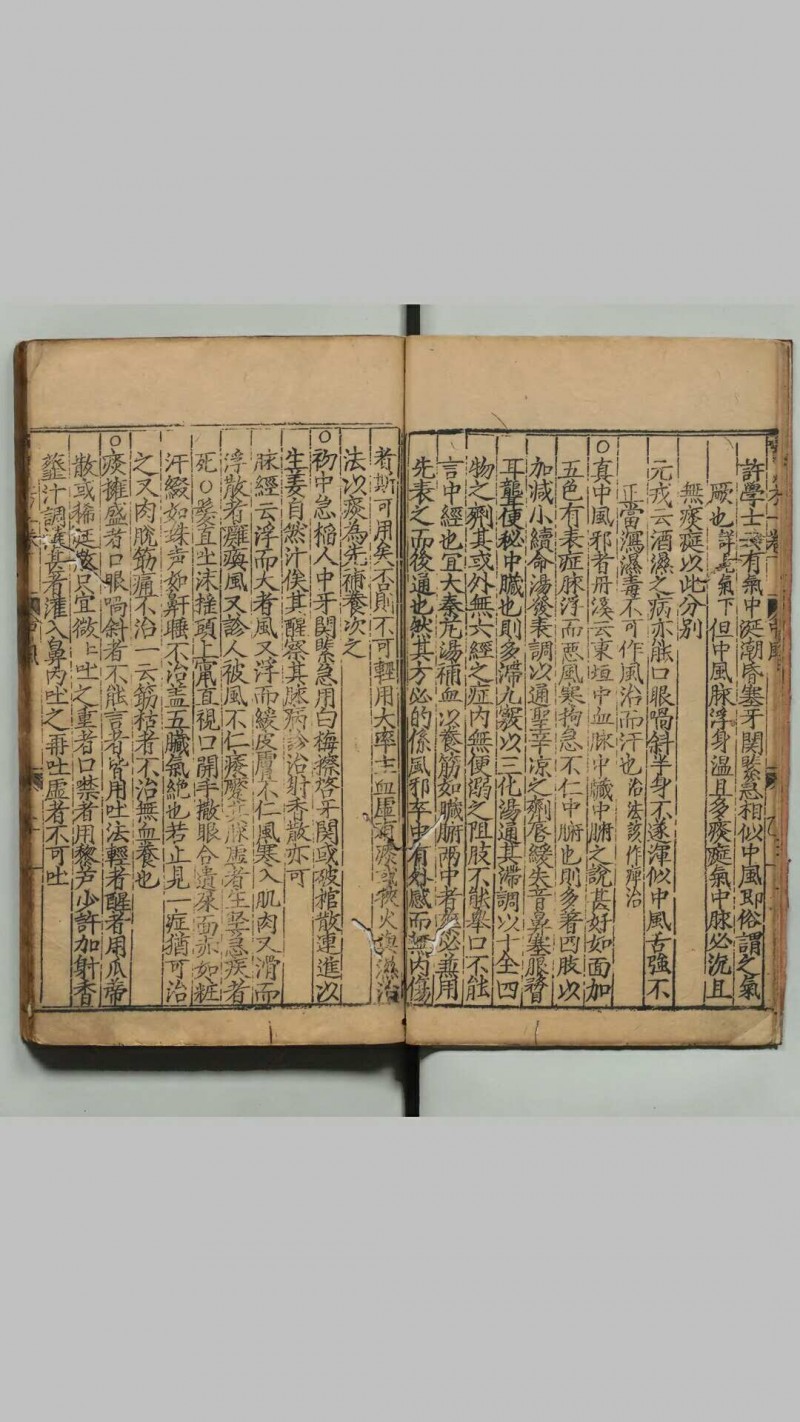 許學士云有氣中涎潮昏塞牙関緊急相似中風即俗謂之氣
厥也詳見氣下但中風脉浮身温且多痰涎氣中脉必沉且
無痰涎以此分别
元戎云酒濕之病亦能口眼喎斜半身不遂渾似中風舌強不
正當瀉濕毒不可作風治而汗也治法該作痺治
○真中風邪者丹溪云東垣中血脉中臟中腑之說甚好如面加
五色有表症脉浮而惡風寒拘急不仁中腑也則多著四肢以
加减小續命湯發表調以通聖辛凉之劑唇緩失音鼻塞眼瞀
耳聾便秘中臟也則多滞九竅以三化湯通其滞調以十全四
物之劑其或外無六經之症内無便溺之阻肢不能舉口不能
言中經也宜大秦艽湯補血以養筋如臟腑兩中者必兼用
先表之而後通也然其方必的係風邪卒中有外感而無内傷
者斯可用矣否則不可輕用大率主血虛有痰或挾火與濕治
法以痰為先補養次之
○初中急稱人中牙関緊急用白梅擦啓牙関或破棺散連進以
生姜自然汁俟其醒察其脉病診治射香散亦可
脉經云浮而大者風又浮而緩皮膚不仁風寒入肌肉又滑而
浮散者癱瘓風又診人被風不仁痿蹷其脉虛者生堅急疾者
死○髮直吐沫揺頭上竄直視口開手撒眼合遺尿面赤如粧
汗綴如珠声如鼾睡不治盖五臓氣絶也若止見一症猶可治
之又肉脫筋痛不治一云筋枯者不治無血養也
○痰擁盛者口眼喎斜者不能言者皆用吐法輕者醒者用瓜蒂
散或稀涎散只宜微上吐之重者口噤者用藜芦少許加射香
虀汁調遂甚者灌入鼻内吐之再吐虛者不可吐